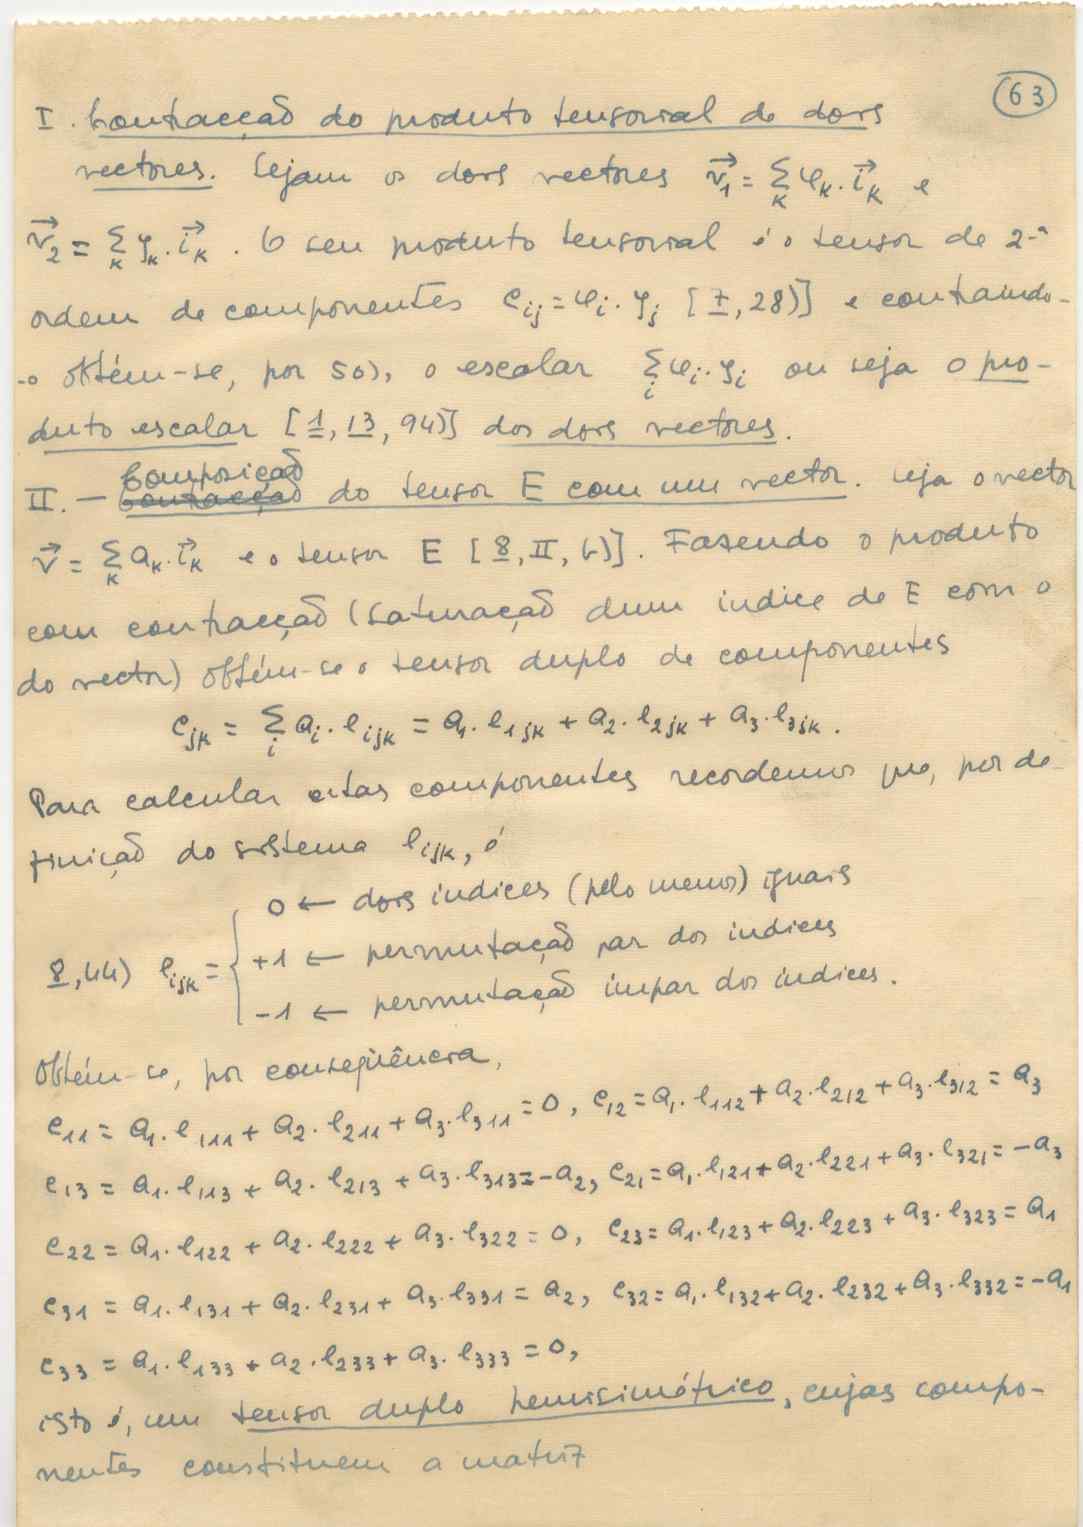 63
I. Contracção do produto tensorial de dois
vectores. Sejam os dois vectores v⃗₁ = Σ_k φ_k . i⃗_k e
v⃗₂ = Σ_k ψ_k . i⃗_k . O seu produto tensorial é o tensor de 2.ª
ordem de componentes c_ij = φ_i . ψ_j [7, 28)] e contraindo-
-o obtém-se, por 50), o escalar Σ_i φ_i . ψ_i ou seja o pro-
duto escalar [1, 13, 94)] dos dois vectores.
Composição
II. — Contracção do tensor E com um vector. Seja o vector
v⃗ = Σ_k a_k . i⃗_k e o tensor E [8, II, b)]. Fazendo o produto
com contracção (saturação dum indice de E com o
do vector) obtém-se o tensor duplo de componentes
c_jk = Σ_i a_i . e_ijk = a₁ . e_1jk + a₂ . e_2jk + a₃ . e_3jk .
Para calcular estas componentes recordemos que, por de-
finição do sistema e_ijk, é
0 ← dois indices (pelo menos) iguais
8,44) e_ijk = { +1 ← permutação par dos indices
-1 ← permutação impar dos indices.
Obtém-se, por conseqüência,
c₁₁ = a₁ . e₁₁₁ + a₂ . e₂₁₁ + a₃ . e₃₁₁ = 0, c₁₂ = a₁ . e₁₁₂ + a₂ . e₂₁₂ + a₃ . e₃₁₂ = a₃
c₁₃ = a₁ . e₁₁₃ + a₂ . e₂₁₃ + a₃ . e₃₁₃ = -a₂, c₂₁ = a₁ . e₁₂₁ + a₂ . e₂₂₁ + a₃ . e₃₂₁ = -a₃
c₂₂ = a₁ . e₁₂₂ + a₂ . e₂₂₂ + a₃ . e₃₂₂ = 0, c₂₃ = a₁ . e₁₂₃ + a₂ . e₂₂₃ + a₃ . e₃₂₃ = a₁
c₃₁ = a₁ . e₁₃₁ + a₂ . e₂₃₁ + a₃ . e₃₃₁ = a₂, c₃₂ = a₁ . e₁₃₂ + a₂ . e₂₃₂ + a₃ . e₃₃₂ = -a₁
c₃₃ = a₁ . e₁₃₃ + a₂ . e₂₃₃ + a₃ . e₃₃₃ = 0,
isto é, um tensor duplo hemisimétrico, cujas compo-
nentes constituem a matriz